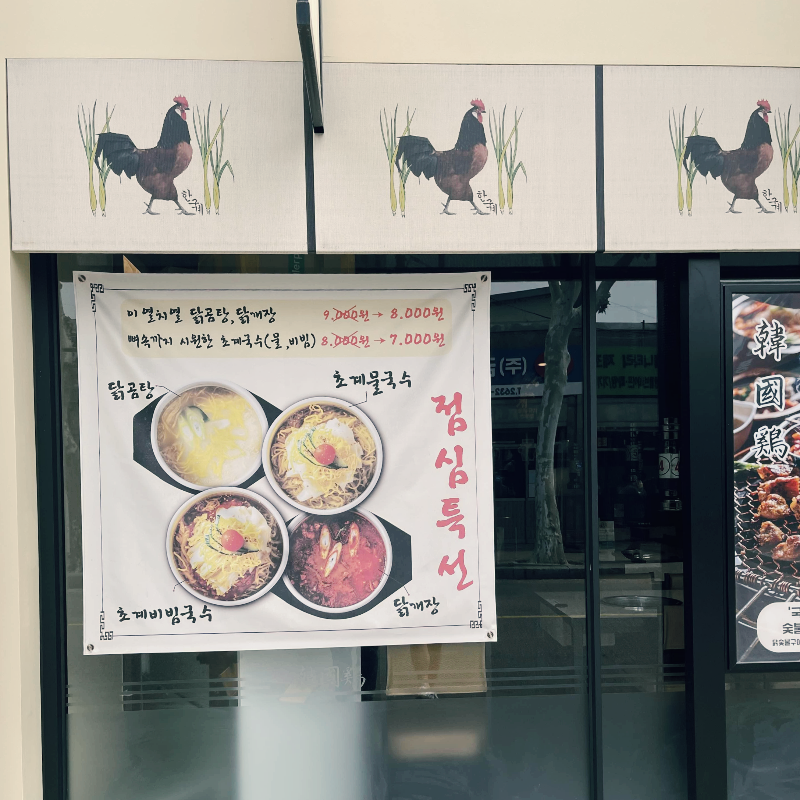 한국계
한국계
한국계
이열치열 닭곰탕, 닭개장 9.000원 → 8.000원
뼈속까지 시원한 초계국수(물,비빔) 8.000원 → 7.000원
닭곰탕
초계물국수
점심특선
초계비빔국수
닭깨장
韓國鷄
(주)
T.2632-